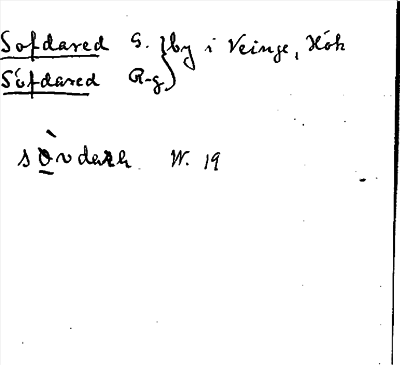 Sofdared G. } by i Veinge, Hök
Söfdared R-g. }
sòvdarh W. 19